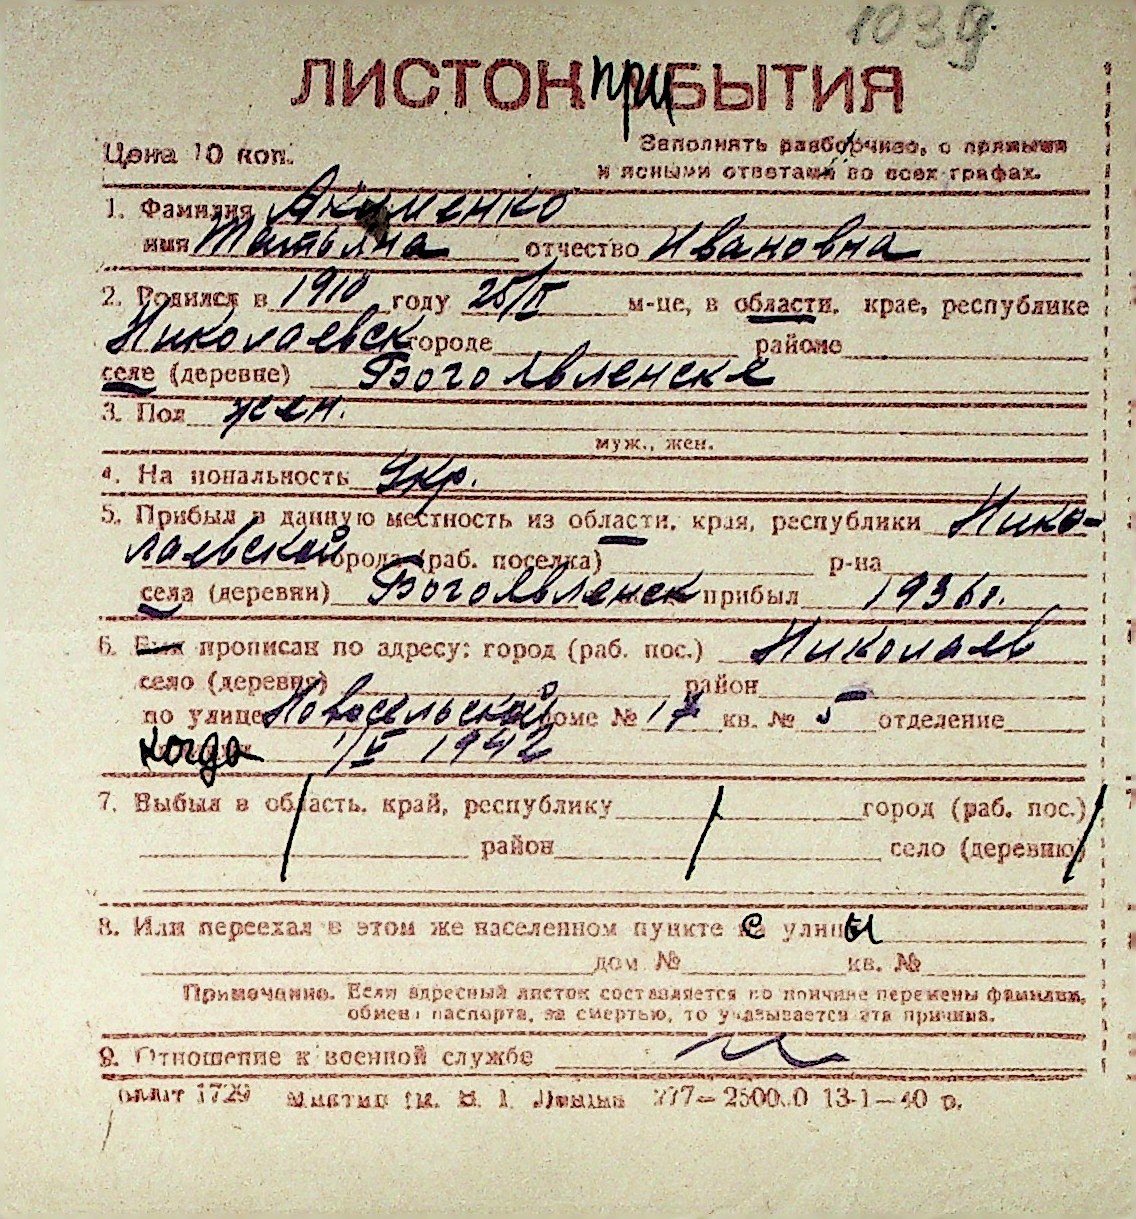 1039
ЛИСТОК ПРИБЫТИЯ
Цена 10 коп.
Заполнять разборчиво, с прямыми
и ясными ответами во всех графах.
1. Фамилия Акименко
имя Татьяна отчество Ивановна
2. Родился в 1910 году 25/II м-це, в области, крае, республике
Николаевск городе районе
селе (деревне) Богоявленске
3. Пол жен.
муж., жен.
4. Национальность Укр.
5. Прибыл в данную местность из области, края, республики Нико-
лаевской города (раб. поселка) р-на
села (деревни) Богоявленск прибыл 1936 г.
6. Был прописан по адресу: город (раб. пос.) Николаев
село (деревня) район –
по улице Новосельской доме № 17 кв. № 5 отделение
когда 1/V 1942
7. Выбыл в область, край, республику город (раб. пос.)
район село (деревню)
8. Или переехал в этом же населенном пункте с улицы
дом № кв. №
Примечание. Если адресный листок составляется по причине перемены фамилии,
обмена паспорта, за смертью, то указывается эта причина.
9. Отношение к военной службе
1729 им. В. И. Ленина 13-1-40 р.